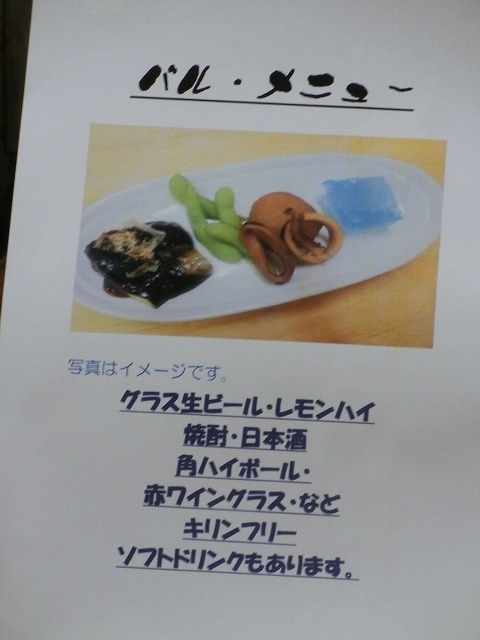 バル・メニュー
写真はイメージです。
グラス生ビール・レモンハイ
焼酎・日本酒
角ハイボール・
赤ワイングラス・など
キリンフリー
ソフトドリンクもあります。